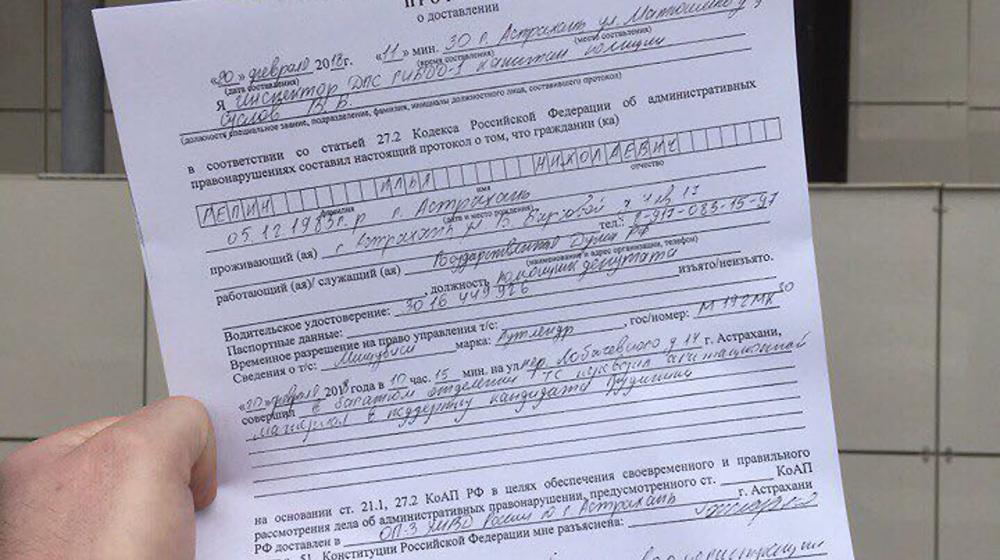 о доставлении
«20» февраля 2018г. «11» мин. 30 г. Астрахань ул.
(дата составления) (время составления) (место составления)
Я Инспектор ДПС капитан полиции
Суслов В.В.
(должность специальное звание, подразделение, фамилия, инициалы должностного лица, составившего протокол)
в соответствии со статьей 27.2 Кодекса Российской Федерации об административных
правонарушениях составил настоящий протокол о том, что гражданин (ка)
ЛЕПИН ИЛЬЯ НИКОЛАЕВИЧ
фамилия имя отчество
05.12.1983г.р г. Астрахань
(дата и место рождения)
проживающий (ая) г. Астрахань ул тел.: 8-917-083-15-97
работающий (ая)/ служащий (ая) Государственная Дума РФ
(наименования и адрес организации, телефон)
, должность помощник депутата
Водительское удостоверение: 3016 449926 изъято/неизъято.
Паспортные данные:
Временное разрешение на право управления т/с:
Сведения о т/с: Мицубиси марка: Аутлендр , гос/номер: М 192МК 30
«20» февраля 2018 года в 10 час. 15 мин. на ул/пер. Лобачевского д 14 г. Астрахани,
совершил в багажном отделении т/с агитационной
материал в поддержку кандидата Грудинина
на основании ст. 21.1, 27.2 КоАП РФ в целях обеспечения своевременного и правильного
рассмотрения дела об административном правонарушении, предусмотренного ст. КоАП
РФ доставлен в ОП-3 УМВД России по г. Астрахань г. Астрахани
51 Конституции Российской Федерации мне разъяснена: